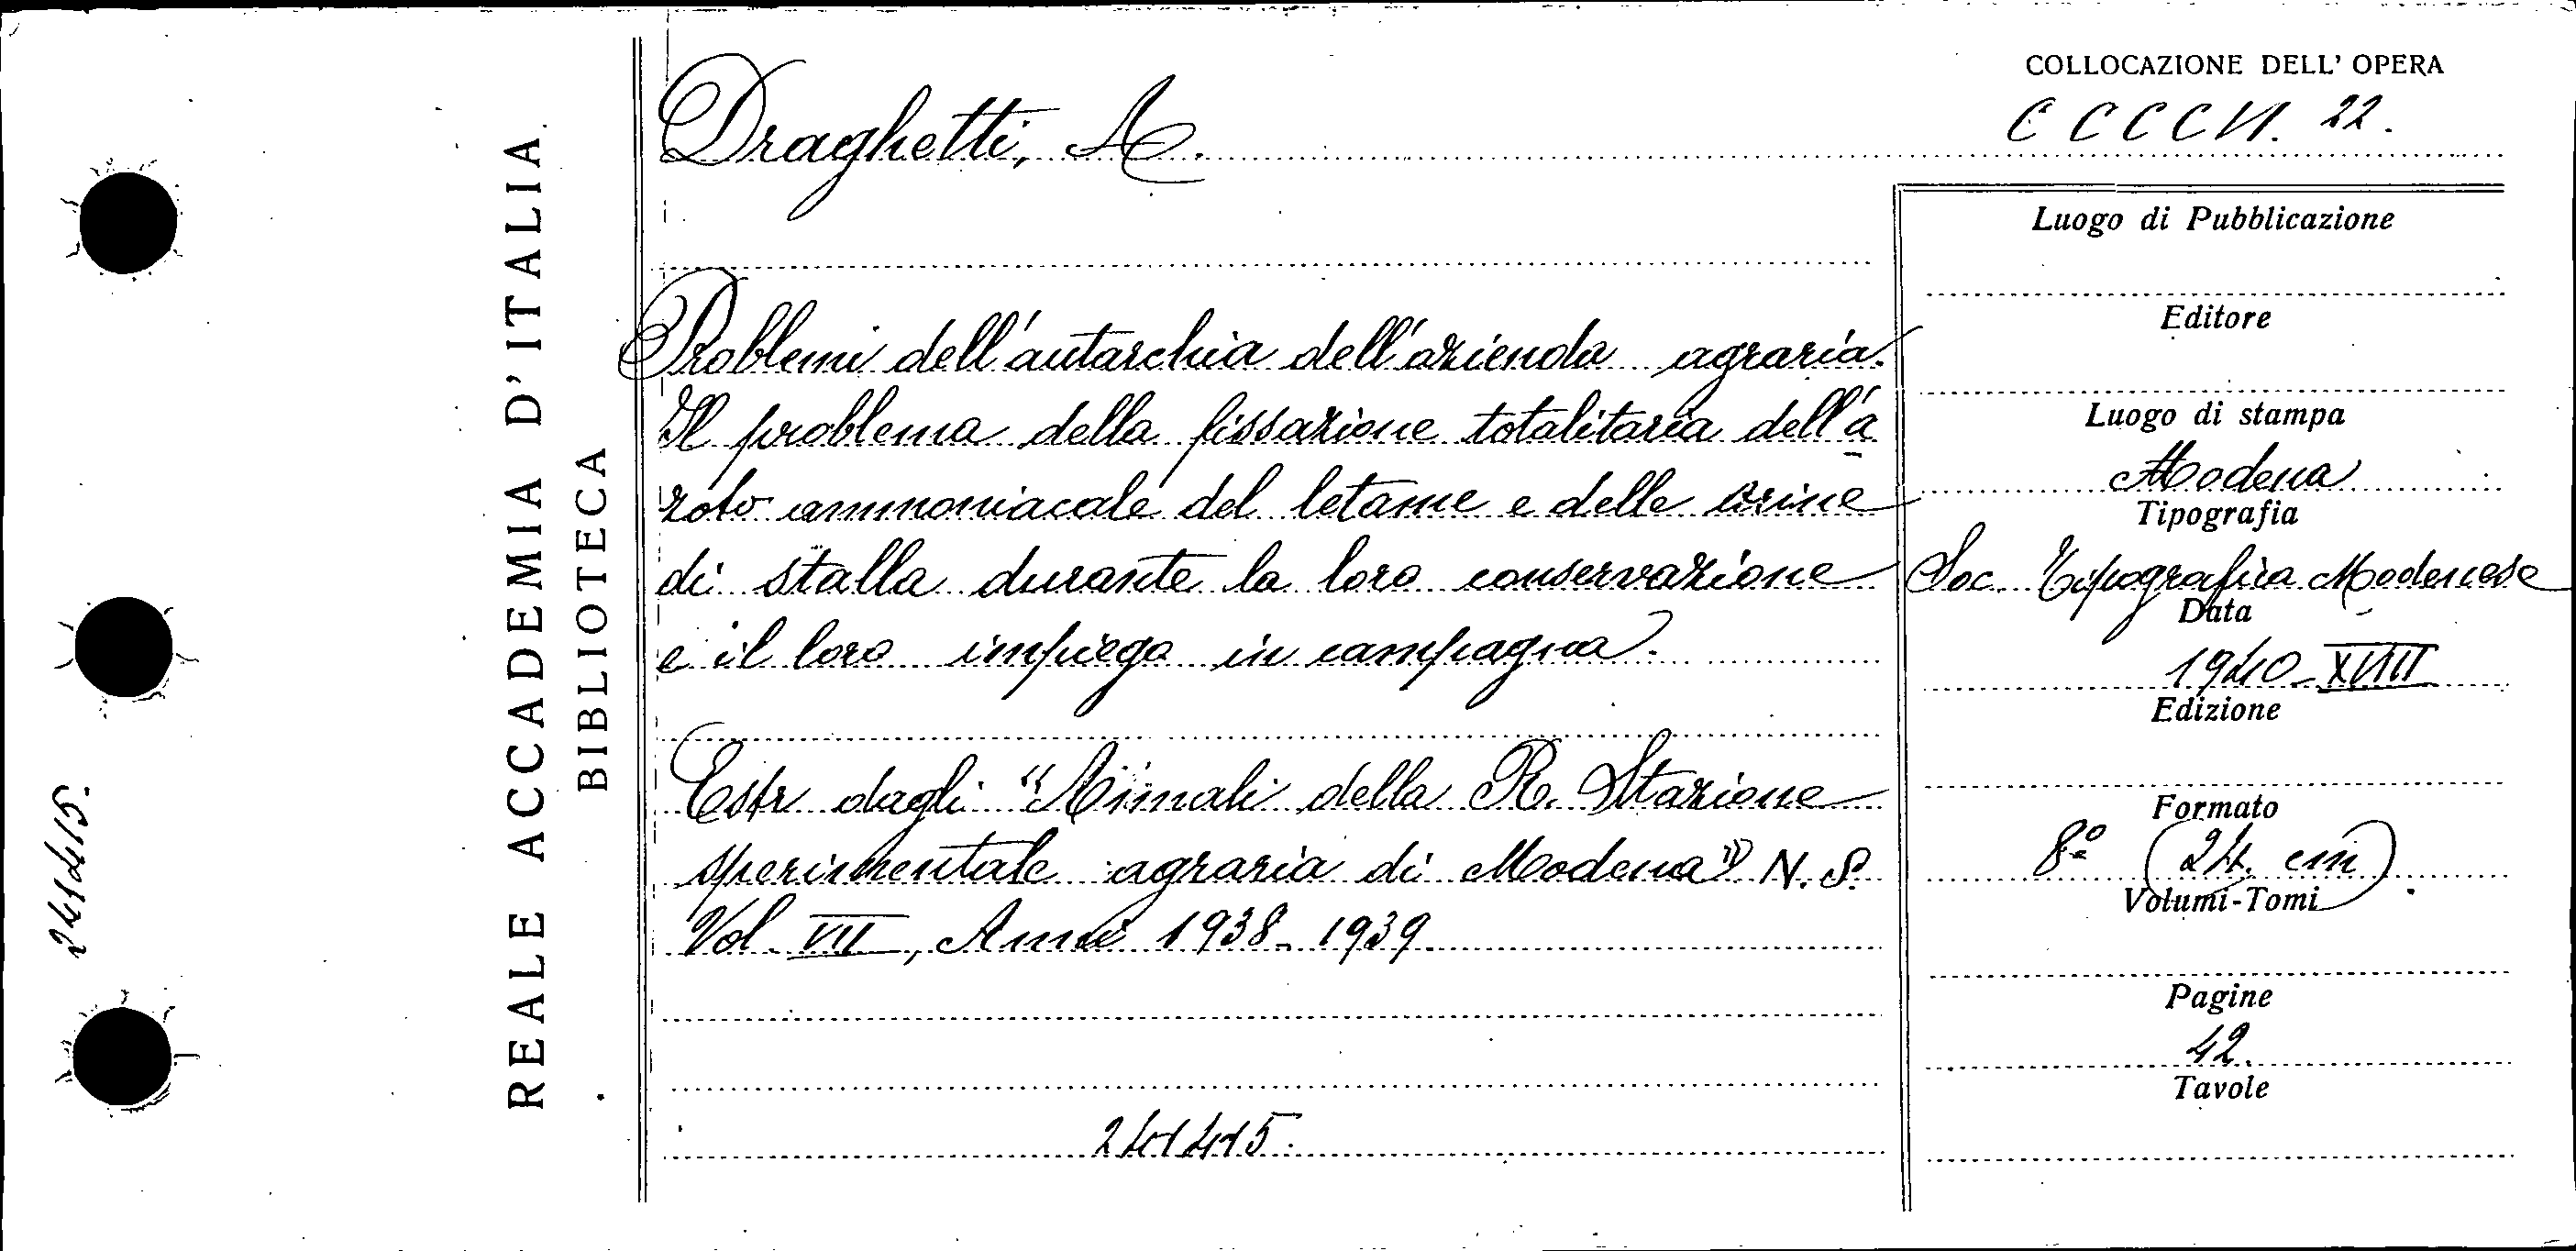 24415.
REALE ACCADEMIA D'ITALIA
BIBLIOTECA
Draghetti, A.
Problemi dell'autarchia dell'azienda agraria.
Il problema della fissazione totalitaria dell'a
zoto ammoniacale del letame e delle orine
di stalla durante la loro conservazione
e il loro impiego in campagna.
Estr. dagli "Annali della R. Stazione
sperimentale agraria di Modena" N.S.
Vol. VII, Anni 1938-1939
24415.
COLLOCAZIONE DELL'OPERA
CCCCVI. 22.
Luogo di Pubblicazione
Editore
Luogo di stampa
Modena
Tipografia
Soc. Tipografica Modenese
Data
1940-XVIII
Edizione
Formato
8º (24. cm).
Volumi-Tomi
Pagine
42.
Tavole